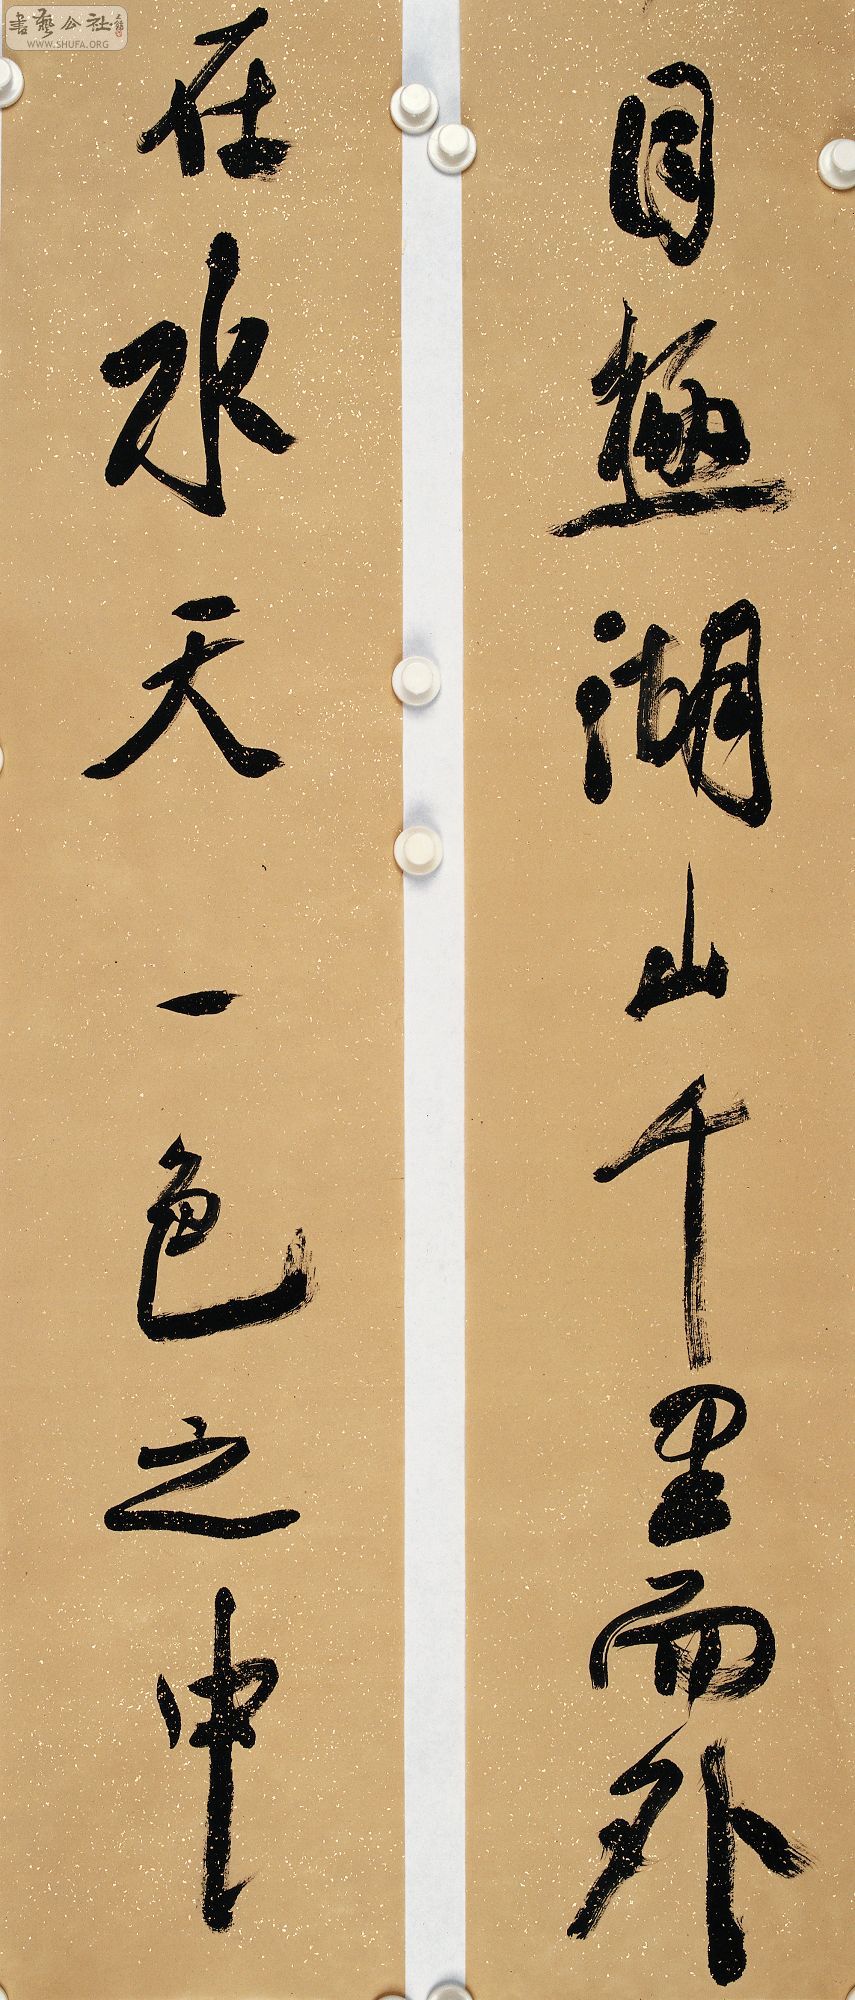 目極湖山千里而外
在水天一色之中
書藝公社
WWW.SHUFA.ORG